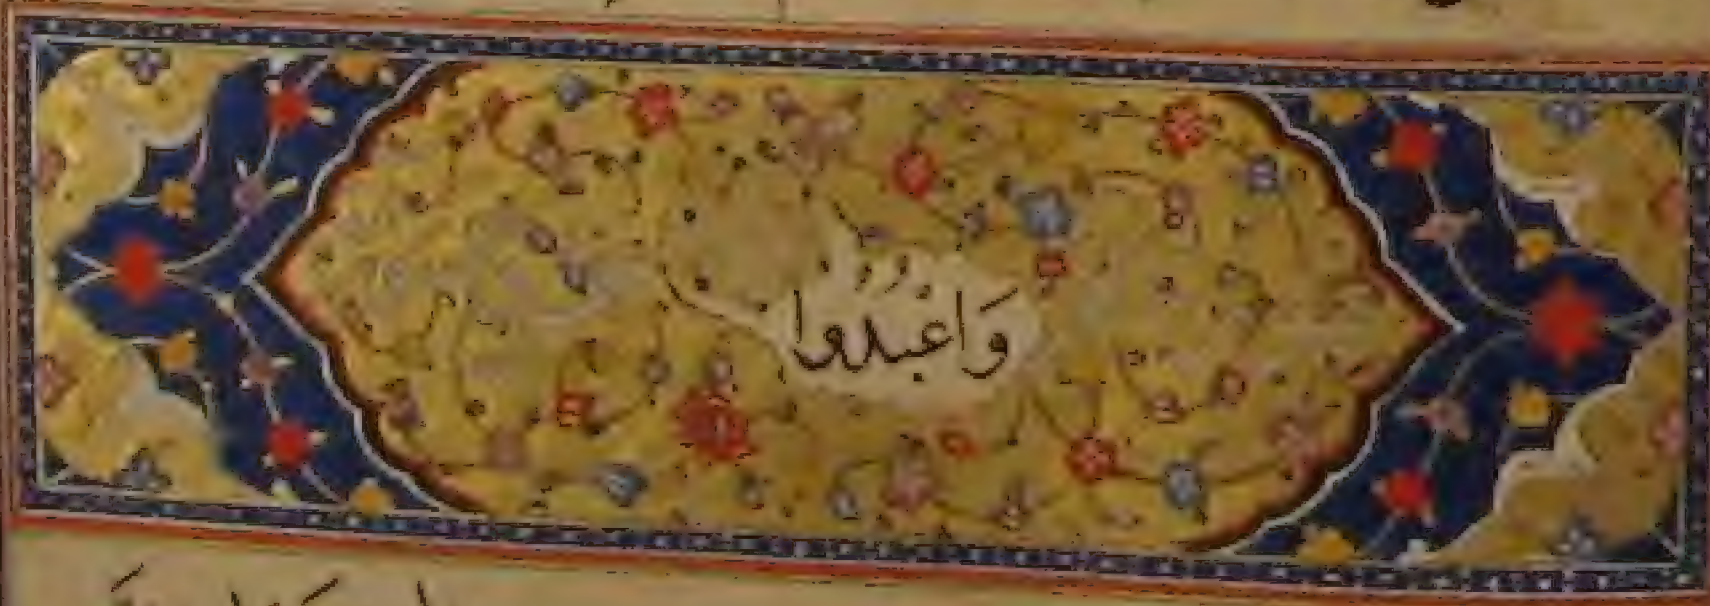 وَاعبدوا